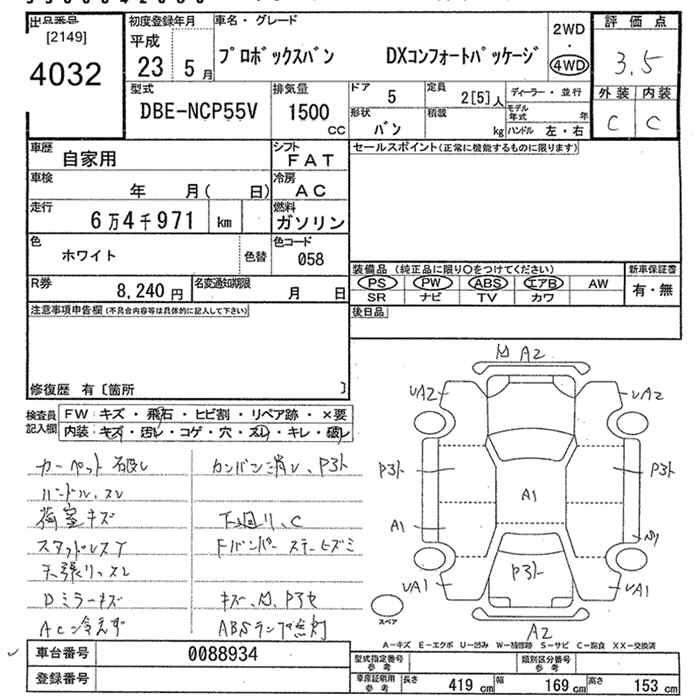 出品番号
[2149]
4032
初度登録年月
平成
23 5月
車名・グレード
プロボックスバン DXコンフォートパッケージ
2WD
・
4WD
評価点
3.5
外装 内装
C C
型式
DBE-NCP55V
排気量
1500
CC
ドア
5
定員
2[5]人
ディーラー・並行
形状
バン
積載
kg
モデル年式 年
ハンドル 左・右
車歴
自家用
シフト
FAT
車検
年 月( 日)
冷房
AC
走行
6万4千971 km
燃料
ガソリン
色
ホワイト
色替
色コード
058
R券
8,240円
名変通知期限
月 日
セールスポイント(正常に機能するものに限ります)
装備品(純正品に限り○をつけてください)
新車保証書
PS PW ABS エアB AW
有・無
SR ナビ TV カワ
後日品
注意事項申告欄(不具合内容等は具体的に記入して下さい)
修復歴 有〔箇所 〕
検査員
記入欄
FW:キズ・飛石・ヒビ割・リペア跡・×要
内装:キズ・汚レ・コゲ・穴・スレ・キレ・破レ
カーペット破レ
ハンドル、スレ
荷室キズ
スタッドレスT
天張り、スレ
Dミラーキズ
AC冷えず
カンバン消し、P3ト
下廻り、C
Fバンパー ステーヒズミ
ABSランプ点灯
A2
UA2
UA2
P3ト
P3ト
A1
A1
P3ト
UA1
UA1
A2
スペア
A-キズ E-エクボ U-凹み W-補修跡 S-サビ C-腐食 XX-交換済
車台番号
0088934
登録番号
型式指定番号
参考
類別区分番号
参考
車庫証明用
参考
長さ 419cm 幅 169cm 高さ 153cm